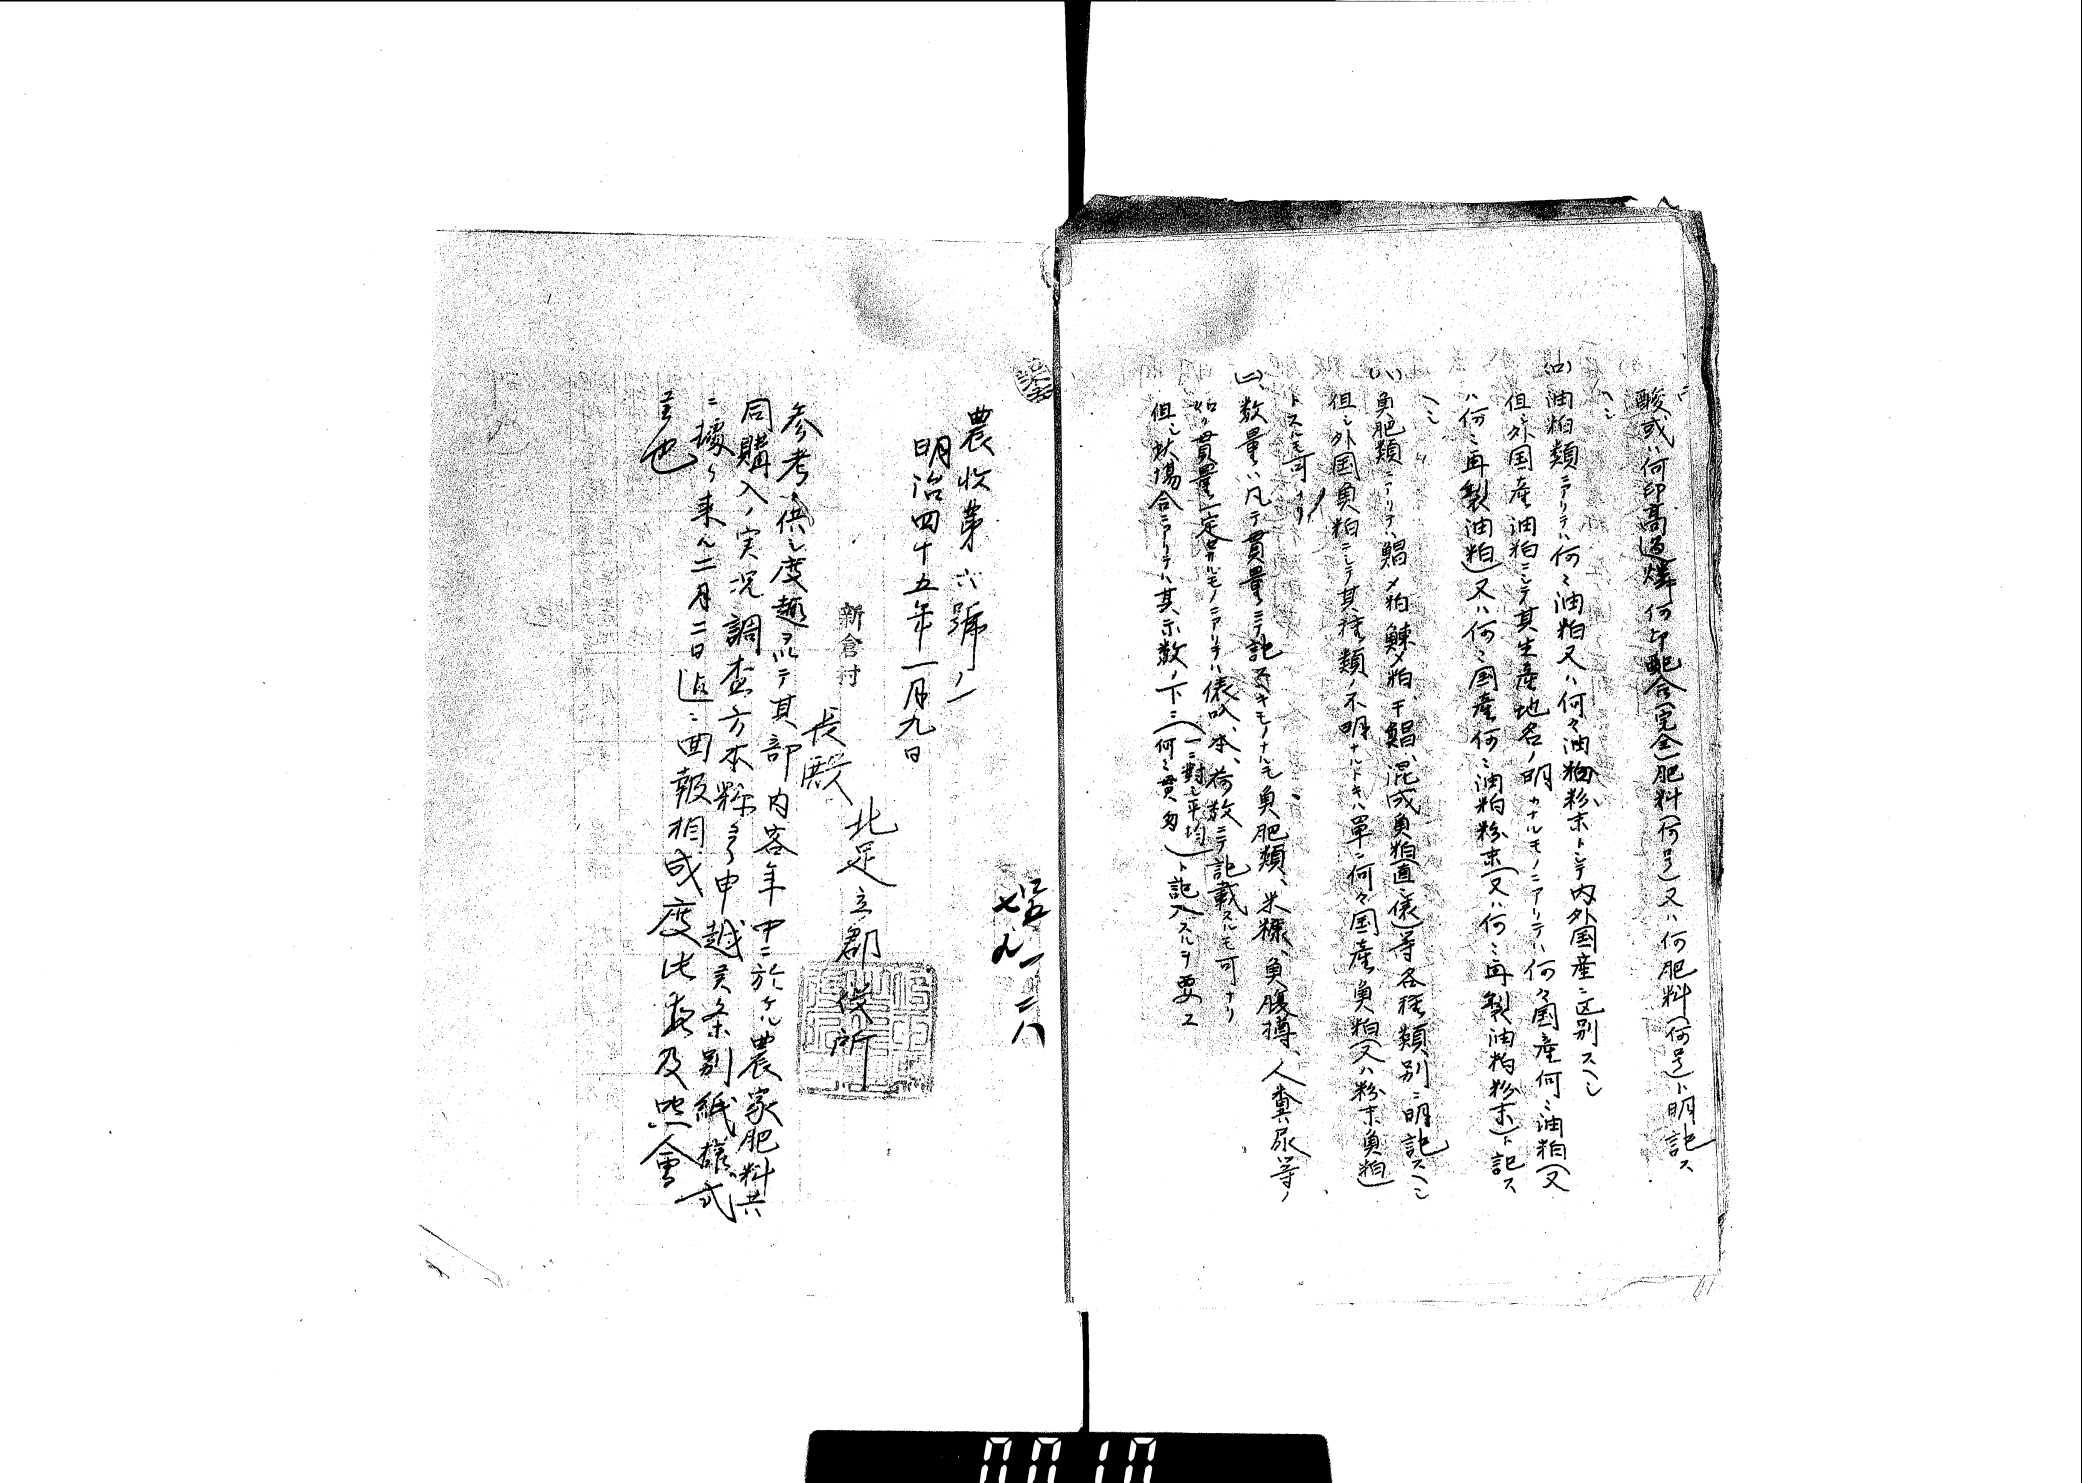 酸或ハ何印高過燐何印配合(完全)肥料(何号)又ハ何肥料(何号)ト明記ス
ヘシ
(ロ)油粕類ニアリテハ何々油粕又ハ何々油粕粉末トシテ内外国産ニ区別スヘシ
但シ外国産油粕ニシテ其生産地名ノ明カナルモノニアリテハ何々国産何々油粕(又
ハ何々再製油粕)又ハ何々国産何々油粕粉末(又ハ何々再製油粕粉末)ト記ス
ヘシ
(ハ)魚肥類ニアリテハ鰮〆粕、鰊〆粕、干鰮、混成魚粕(直シ俵)等各種類別ニ明記スヘシ
但シ外国魚粕ニシテ其種類ノ不明ナルトキハ単ニ何々国産魚粕(又ハ粉末魚粕)
トスルモ可ナリ
(ニ)、数量ハ凡テ貫量ニテ記スベキモノナルモ魚肥類、米糠、魚腹樽、人糞尿等ノ
如ク貫量一定セサルモノニアリテハ俵、叺、本、荷数ニテ記載スルモ可ナリ
但シ此場合ニアリテハ其示数ノ下ニ(一ニ対シ平均何々貫匁)ト記入スルヲ要ス
農收第六號ノ一
明治四十五年一月九日
四五 一 二八
北足立郡役所
新倉村
長殿
参考ニ供シ度趣ヲ以テ其部内客年中ニ於ケル農家肥料共
同購入ノ実况調査方本縣ヨリ申越候条別紙様式
ニ據リ来ル二月二日迄ニ回報相成度此段及照會
候也
0010